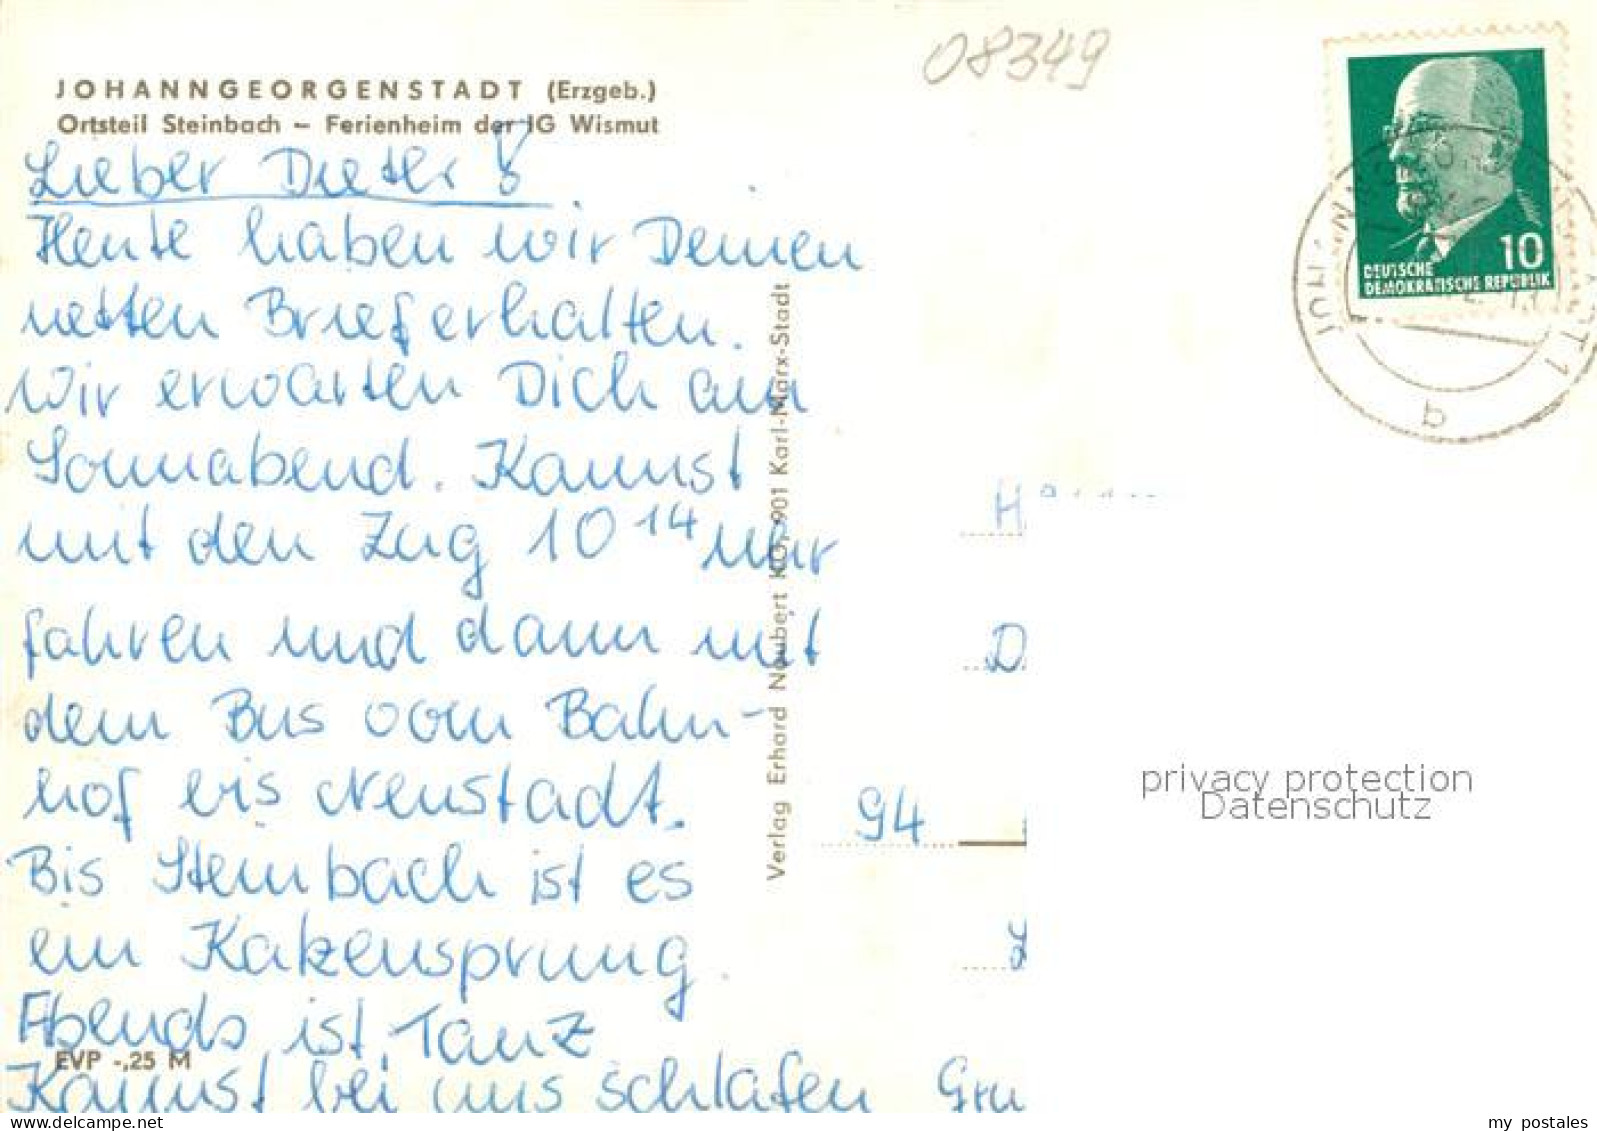 08349
JOHANNGEORGENSTADT (Erzgeb.)
Ortsteil Steinbach – Ferienheim der IG Wismut
Lieber Dieter!
Heute haben wir Deinen
netten Brief erhalten.
Wir erwarten Dich am
Sonnabend. Kannst
mit den Zug 10 14 Uhr
fahren und dann mit
dem Bus vom Bahn-
hof bis Neustadt.
Bis Steinbach ist es
ein Katzensprung.
Abends ist Tanz
Kannst bei uns schlafen Gru
EVP -,25 M
Verlag Erhard Neubert KG, 901 Karl-Marx-Stadt
10
DEUTSCHE
DEMOKRATISCHE REPUBLIK
b
H
D
94
L
privacy protection
Datenschutz
delcampe.net
my_postales